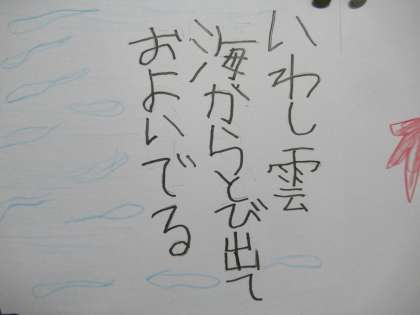 いわし雲
海からとび出て
およいでる